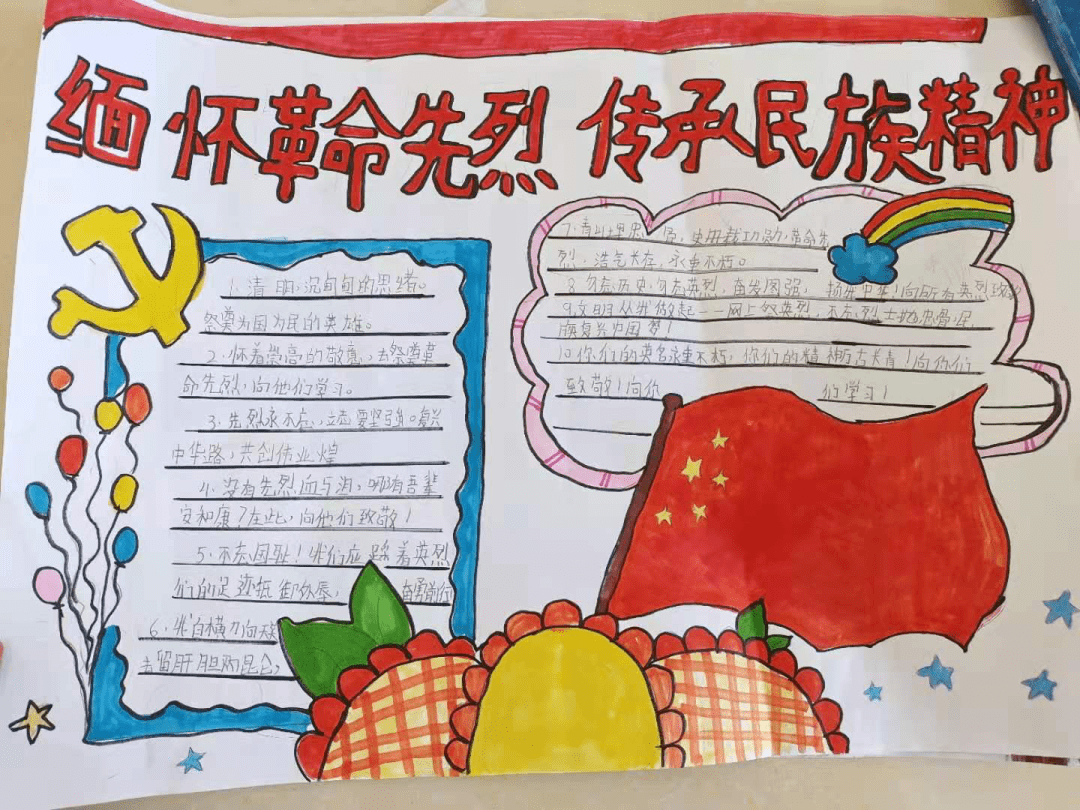 缅怀革命先烈 传承民族精神
1、清明,沉甸甸的思绪。
祭奠为国为民的英雄。
2、怀着崇高的敬意,去祭尊革
命先烈,向他们学习。
3、先烈永不忘,立志要坚强。复兴
中华路,共创伟业煌
4、没有先烈血与泪,哪有吾辈
安和康?在此,向他们致敬!
5、不忘国耻!我们应踩着英烈
们的足迹抵御外辱, 奋勇前行
6、我自横刀向天
去留肝胆两昆仑,
7、青山埋忠 骨,史册载功勋,革命先
烈,浩气长存,永垂不朽。
8、勿忘历史,勿忘英烈,奋发图强, 扬我中华!向所有英烈致敬
9、文明从我做起——网上祭英烈,不忘烈士地忠骨,民
族复兴中国梦!
10、你们的英名永垂不朽,你们的精神万古长青!向你们
致敬!向你 们学习!